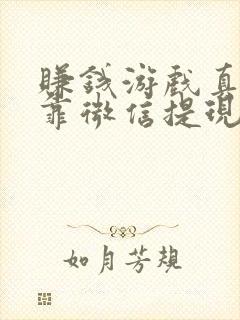 赚钱游戏真
靠微信提现
如月芳规